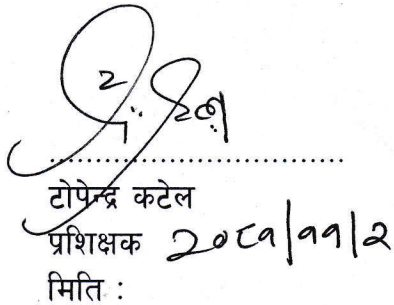 ........................................
टोपेन्द्र कटेल
प्रशिक्षक २०८१/११/२
मिति :